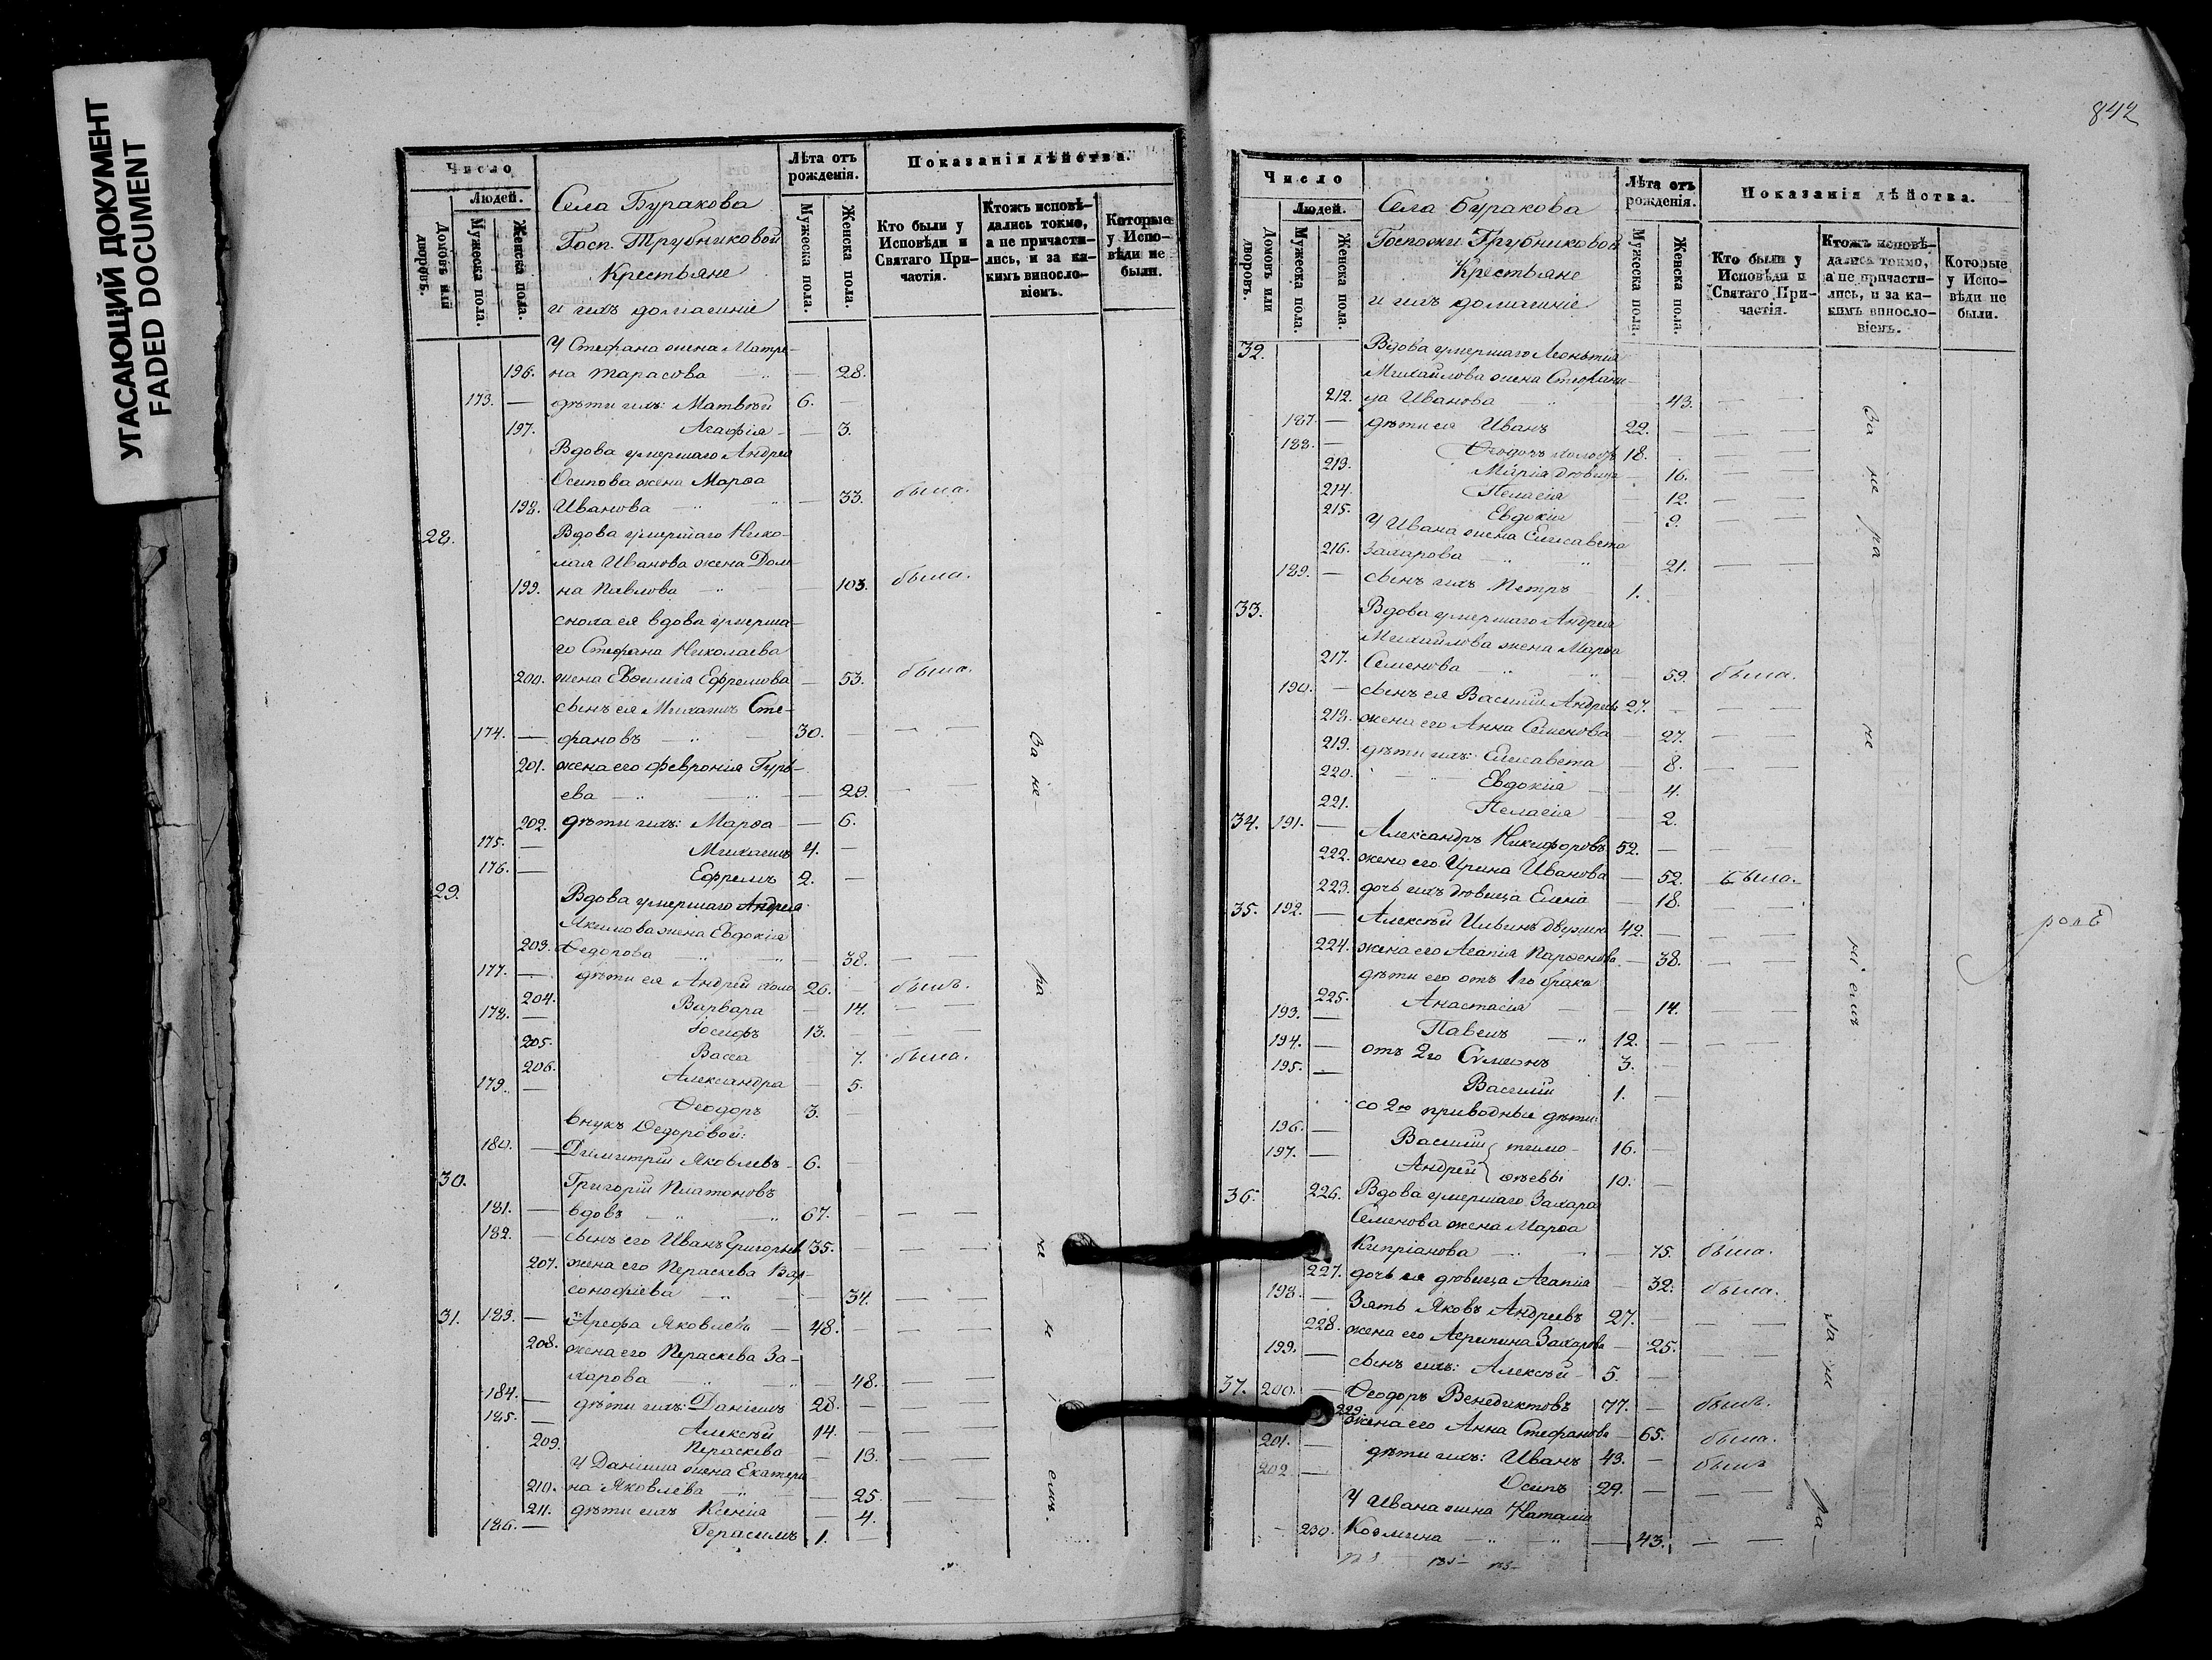 УГАСАЮЩИЙ ДОКУМЕНТ
FADED DOCUMENT
Число
Людей.
Домовъ или дворовъ.
Мужеска пола.
Женска пола.
Села Буракова
Госп. Трубниковой
Крестьяне
и ихъ домашніе
Лѣта отъ рожденія.
Мужеска пола.
Женска пола.
Показанія дѣйства.
Кто были у Исповѣди и Святаго Причастія.
Ктожъ исповѣдались токмо, а не причастились, и за какимъ винословіемъ.
Которые у Исповѣди не были.
У Стефана жена Матре-
196. на Тарасова — 28.
173. — дѣти ихъ: Матвѣй 6. —
197. Агафія — 3.
Вдова умершаго Андрея
Осипова жена Марѳа
198. Иванова — 33. была.
28. Вдова умершаго Нико-
лая Иванова жена Дом-
199. на Павлова — 103. была.
сноха ея вдова умерша-
го Стефана Николаева
200. жена Евѳимія Ефремова — 53. была.
сынъ ея Михаилъ Сте-
174. — фановъ 30. — — —
201. жена его Февронія Гурь-
ева — 29. — —
202. дѣти ихъ: Марѳа — 6.
175. — Михаилъ 4. —
176. — Ефремъ 2. —
29. Вдова умершаго Андрея
Якимова жена Евдокія
203. Ѳедорова — 38. — —
177. — дѣти ея Андрей холо 26. — былъ.
204. Варвара — 14. —
178. — Іосифъ 13. — — —
205. Васса 7. была.
206. Александра — 5.
179. — Ѳеодоръ 3. —
внукъ Ѳедоровой:
180. — Димитрій Яковлевъ 6. —
30. Григорій Платоновъ
181. — вдовъ 67. — — —
182. — сынъ его Иванъ Григорьев 35. — — —
207. жена его Параскева Вар-
сонофіева — 34. — —
31. 183. — Арефа Яковлевъ — 48. — — —
208. жена его Параскева За-
харова — 48. — —
184. — дѣти ихъ: Даніилъ 28. —
185. — Алексѣй 14. — — —
209. Параскева — 13. — —
У Даніила жена Екатери-
210. на Яковлева — 25. — —
211. дѣти ихъ Ксенія — 4.
186. — Герасимъ 1. —
За не-
ра
842
Число
Людей.
Домовъ или дворовъ.
Мужеска пола.
Женска пола.
Села Буракова
Госпожи Трубниковой
Крестьяне
и ихъ домашніе
Лѣта отъ рожденія.
Мужеска пола.
Женска пола.
Показанія дѣйства.
Кто были у Исповѣди и Святаго Причастія.
Ктожъ исповѣдались токмо, а не причастились, и за какимъ винословіемъ.
Которые у Исповѣди не были.
32. Вдова умершаго Леонтія
Михайлова жена Стефани-
212. да Иванова — 43. — —
187. — дѣти ея Иванъ 22. — — —
188. — Ѳеодоръ холостъ 18. — —
213. Марія дѣвица — 16. — —
214. Пелагія 12. — —
215. Евдокія — 9. — —
У Ивана жена Елисавета
216. Захарова 21. — —
189. — сынъ ихъ Петръ 1.
33. Вдова умершаго Андрея
Михайлова жена Марѳа
217. Семенова — 59. была.
190. — сынъ ея Василій Андреевъ 27. — — —
218. жена его Анна Семенова — 27. — —
219. дѣти ихъ: Елисавета — 8. — —
220. Евдокія — 4.
221. Пелагія — 2.
34. 191. — Александръ Никифоровъ 52. — —
222. жена его Ирина Иванова — 52. была.
223. дочь ихъ дѣвица Елена — 18. — —
35. 192. — Алексѣй Ильинъ 42. — — —
224. жена его Агапія Парѳенова — 38. — —
дѣти его отъ 1го брака
225. Анастасія — 14. — —
193. — Павелъ 12. — — —
194. — отъ 2го Сѵмеонъ 3. —
195. — Василій 1. —
со 2ю приводные дѣти:
196. — Василій тимо- 16. —
197. — Андрей ѳѣевы 10. —
36. 226. Вдова умершаго Захара
Семенова жена Марѳа
Кипріанова — 75. была.
227. дочь ея дѣвица Агапія — 32. была.
198. — Зять Яковъ Андреевъ 27. — — —
228. жена его Агрипина Захарова — 25. — —
199. — сынъ ихъ: Алексѣй 5. —
37. 200. — Ѳеодоръ Венедиктовъ 77. — былъ.
229. жена его Анна Стефанова — 65. была.
201. — дѣти ихъ: Иванъ 43. — былъ
202. — Осипъ 29. — — —
У Ивана жена Наталія
230. Козмина — 43. — —
За не ра
не
ніемъ